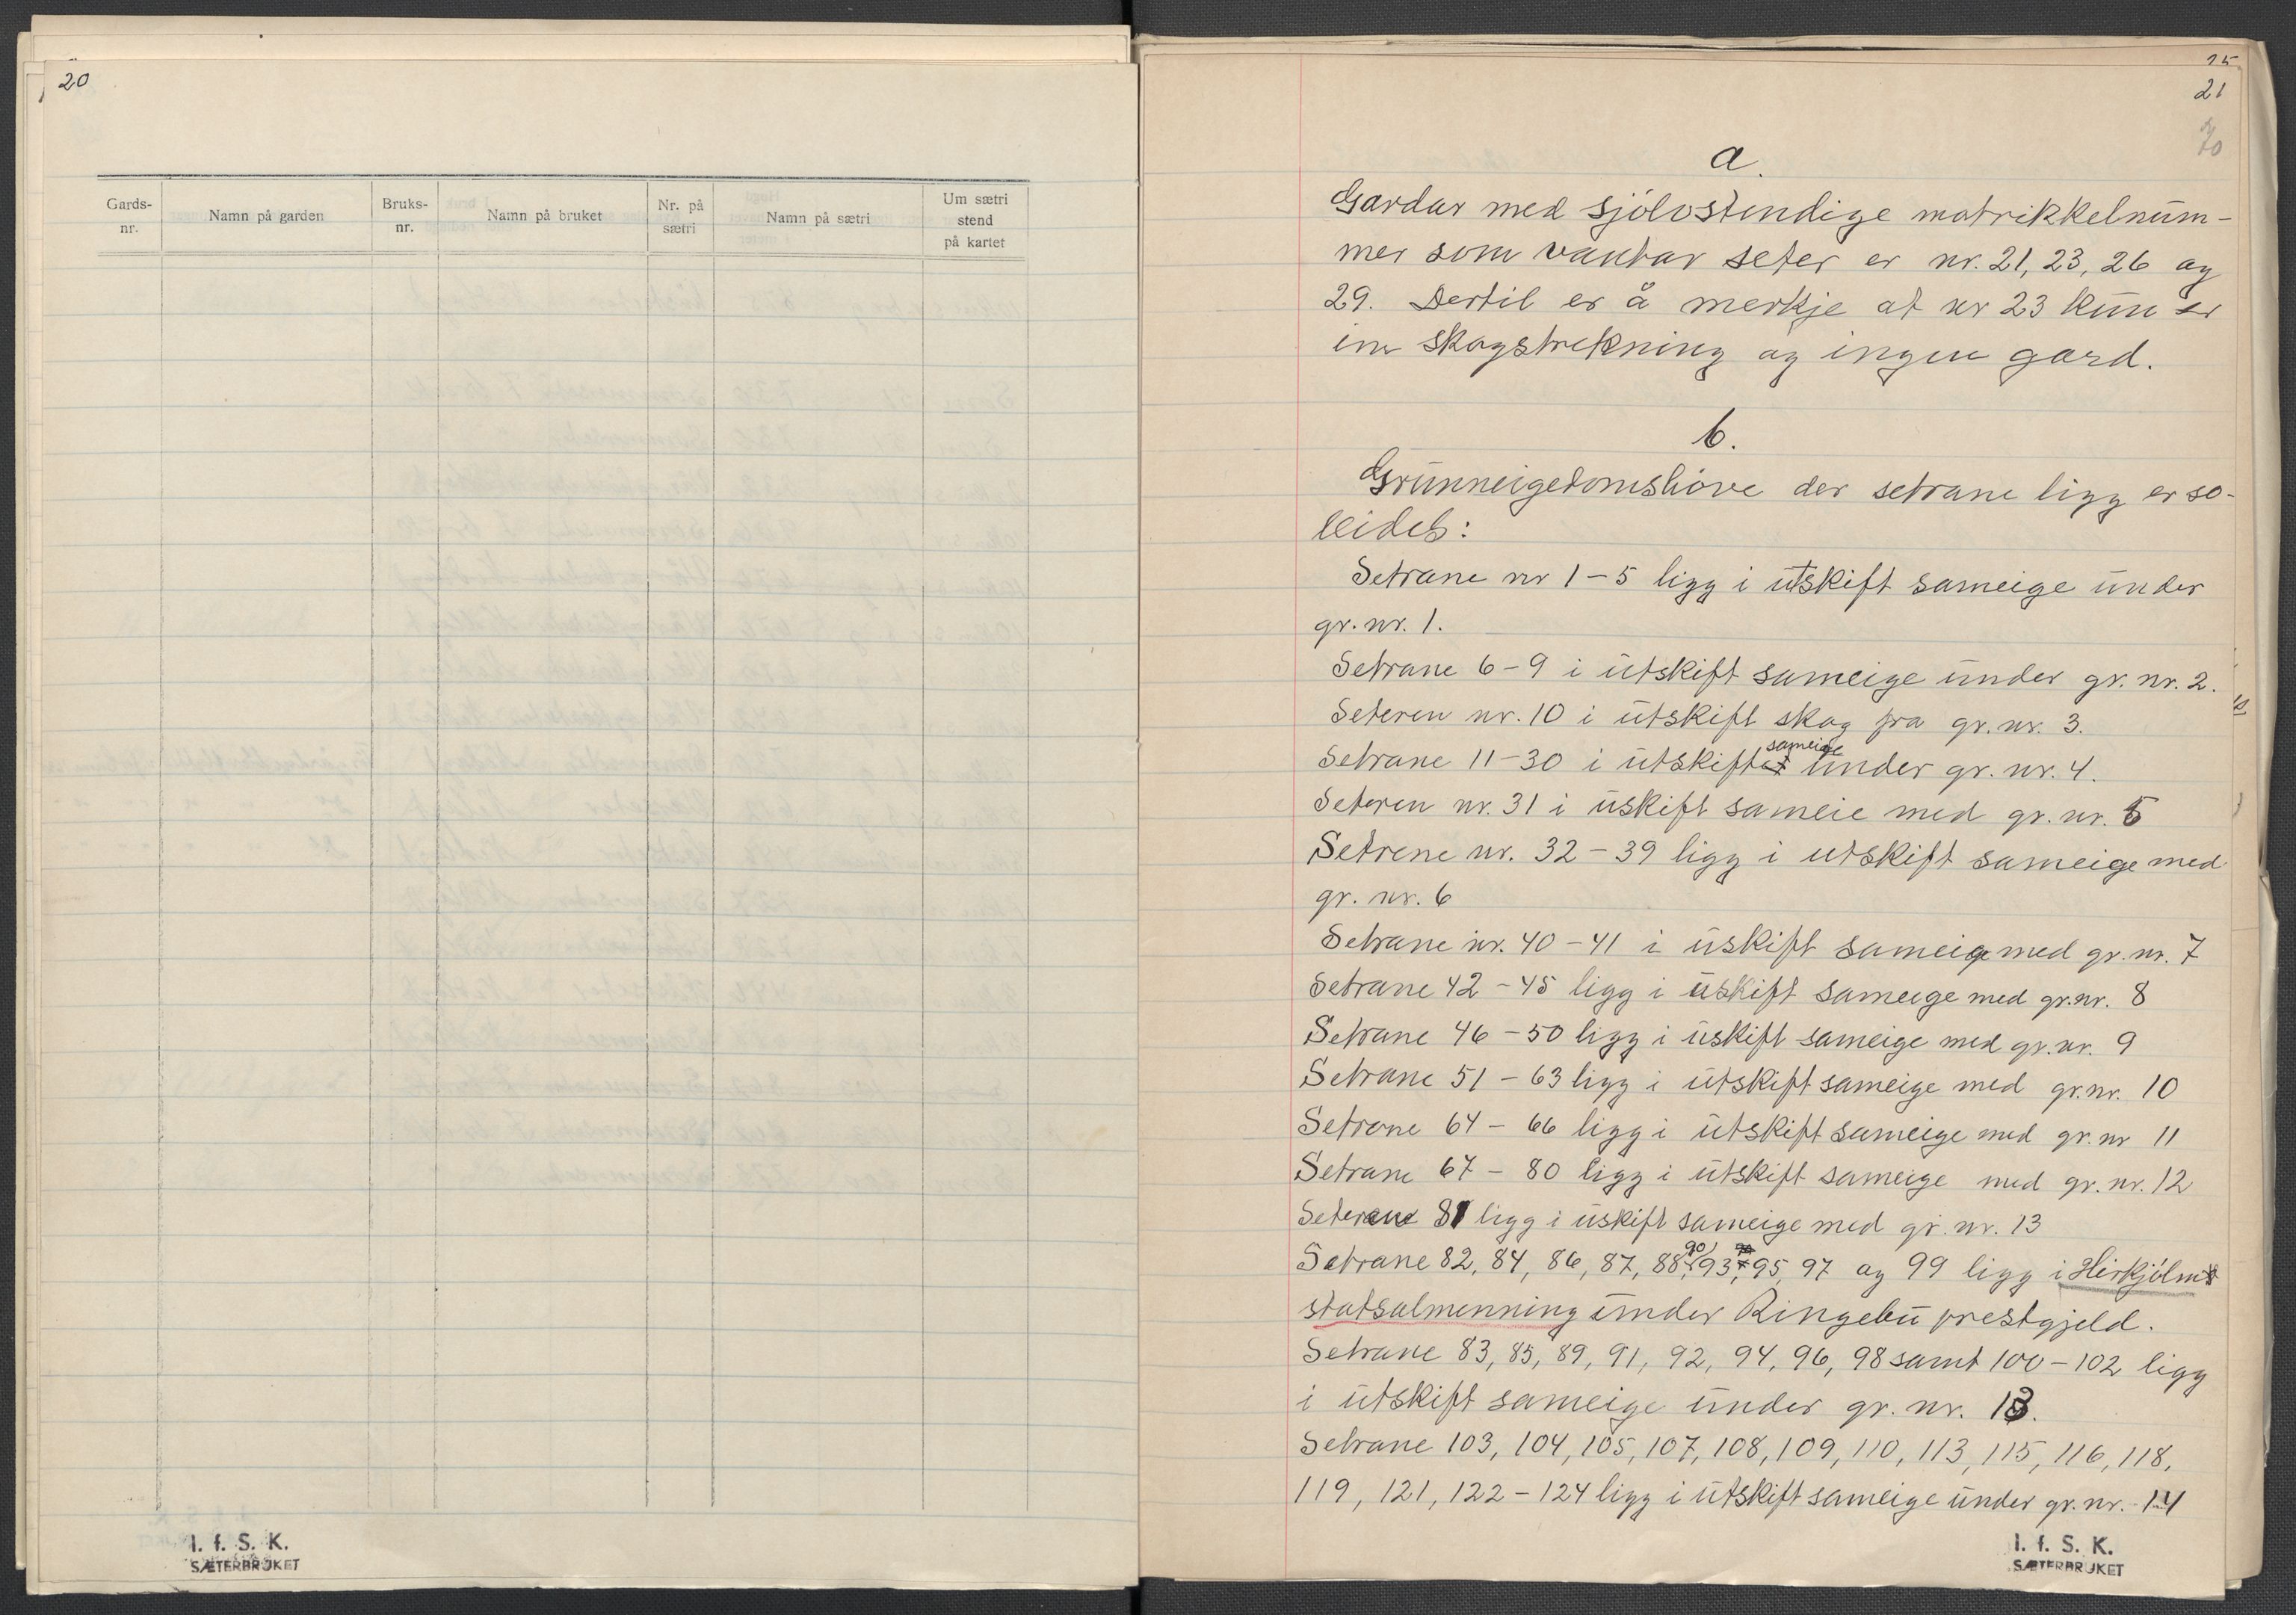 20
Gards-
nr.
Namn på garden
Bruks-
nr.
Namn på bruket
Nr. på
sætri
Namn på sætri
Um sætri
stend
på kartet
I. f. S. K.
SÆTERBRUKET
25
21
a.
Gardar med sjölvstendige matrikkelnum-
mer som vantar seter er nr. 21, 23, 26 og
29. Dertil er å merkje at nr 23 kun er
ein skogstrekning og ingen gard.
b.
Grunneigedomshöve der setrane ligg er so-
leides:
Setrane nr 1-5 ligg i utskift sameige under
gr. nr. 1.
Setrane 6-9 i utskift sameige under gr. nr. 2.
Seteren nr. 10 i utskift skog fra gr. nr. 3.
Setrane 11-30 i utskift sameige under gr. nr. 4.
Seteren nr. 31 i uskift sameie med gr. nr. 5
Setrene nr. 32-39 ligg i utskift sameige med
gr. nr. 6
Setrane nr. 40-41 i uskift sameige med gr. nr. 7
Setrane 42-45 ligg i uskift sameige med gr.nr. 8
Setrane 46-50 ligg i uskift sameige med gr. nr. 9
Setrane 51-63 ligg i utskift sameige med gr.nr. 10
Setrane 64-66 ligg i utskift sameige med gr. nr 11
Setrane 67-80 ligg i utskift sameige med gr. nr. 12
Seteren 81 ligg i uskift sameige med gr. nr. 13
Setrane 82, 84, 86, 87, 88, 90, 93, 95, 97 og 99 ligg i Hirkjölm
statsalmenning under Ringebu prestgjeld.
Setrane 83, 85, 89, 91, 92, 94, 96, 98 samt 100-102 ligg
i utskift sameige under gr. nr. 13.
Setrane 103, 104, 105, 107, 108, 109, 110, 113, 115, 116, 118,
119, 121, 122-124 ligg i utskift sameige under gr. nr. 14
I. f. S. K.
SÆTERBRUKET